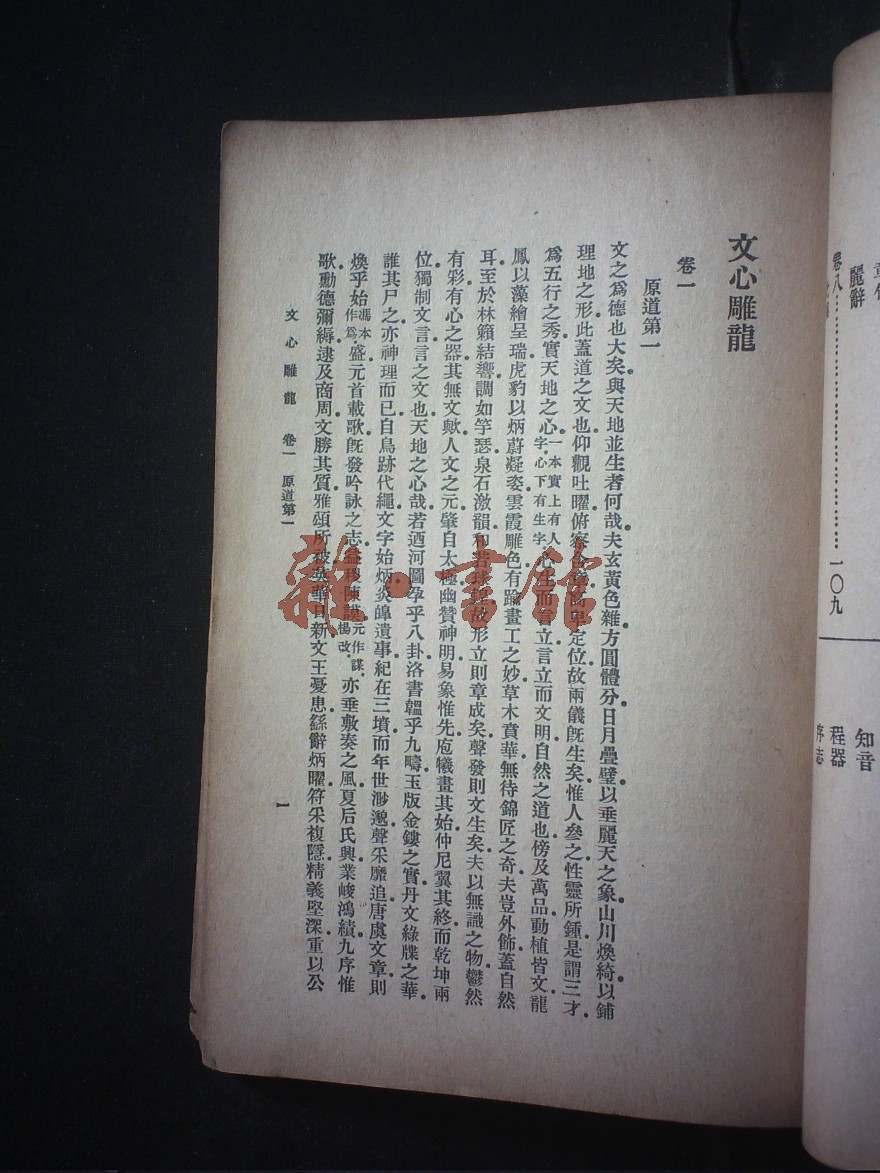 麗辭
卷八……………………一〇九
知音
程器
序志
文心雕龍
卷一
原道第一
文之爲德也大矣與天地並生者何哉夫玄黃色雜方圓體分日月疊璧以垂麗天之象山川煥綺以鋪
理地之形此蓋道之文也仰觀吐曜俯察含章高卑定位故兩儀旣生矣惟人參之性靈所鍾是謂三才
爲五行之秀實天地之心一本實上有人字心下有生字心生而言立言立而文明自然之道也傍及萬品動植皆文龍
鳳以藻繪呈瑞虎豹以炳蔚凝姿雲霞雕色有踰畫工之妙草木賁華無待錦匠之奇夫豈外飾蓋自然
耳至於林籟結響調如竽瑟泉石激韻和若球鍠故形立則章成矣聲發則文生矣夫以無識之物鬱然
有彩有心之器其無文歟人文之元肇自太極幽贊神明易象惟先庖犧畫其始仲尼翼其終而乾坤兩
位獨制文言言之文也天地之心哉若迺河圖孕乎八卦洛書韞乎九疇玉版金鏤之實丹文綠牒之華
誰其尸之亦神理而已自鳥跡代繩文字始炳炎皥遺事紀在三墳而年世渺邈聲采靡追唐虞文章則
煥乎始馮本作爲盛元首載歌旣發吟詠之志益稷陳謨元作謀楊改亦垂敷奏之風夏后氏興業峻鴻績九序惟
歌勳德彌縟逮及商周文勝其質雅頌所被英華日新文王憂患繇辭炳曜符采複隱精義堅深重以公
文心雕龍 卷一 原道第一
一
雜·書館